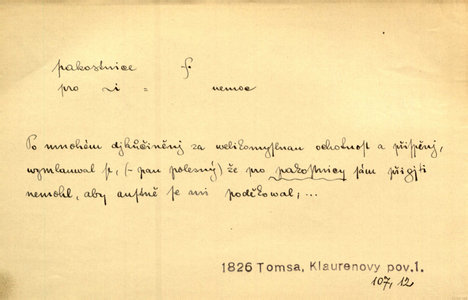 pakostnice f.
pro zi = nemoc
Po mnohém djkůčiněnj za welikomyslnau ochotnost a přispěnj,
wymlauwal se, (= pan polesný) že pro pakostnicy sám přigjti
nemohl, aby austně se mi poděkowal; ...
1826 Tomsa, Klaurenovy pov.1.
107, 12